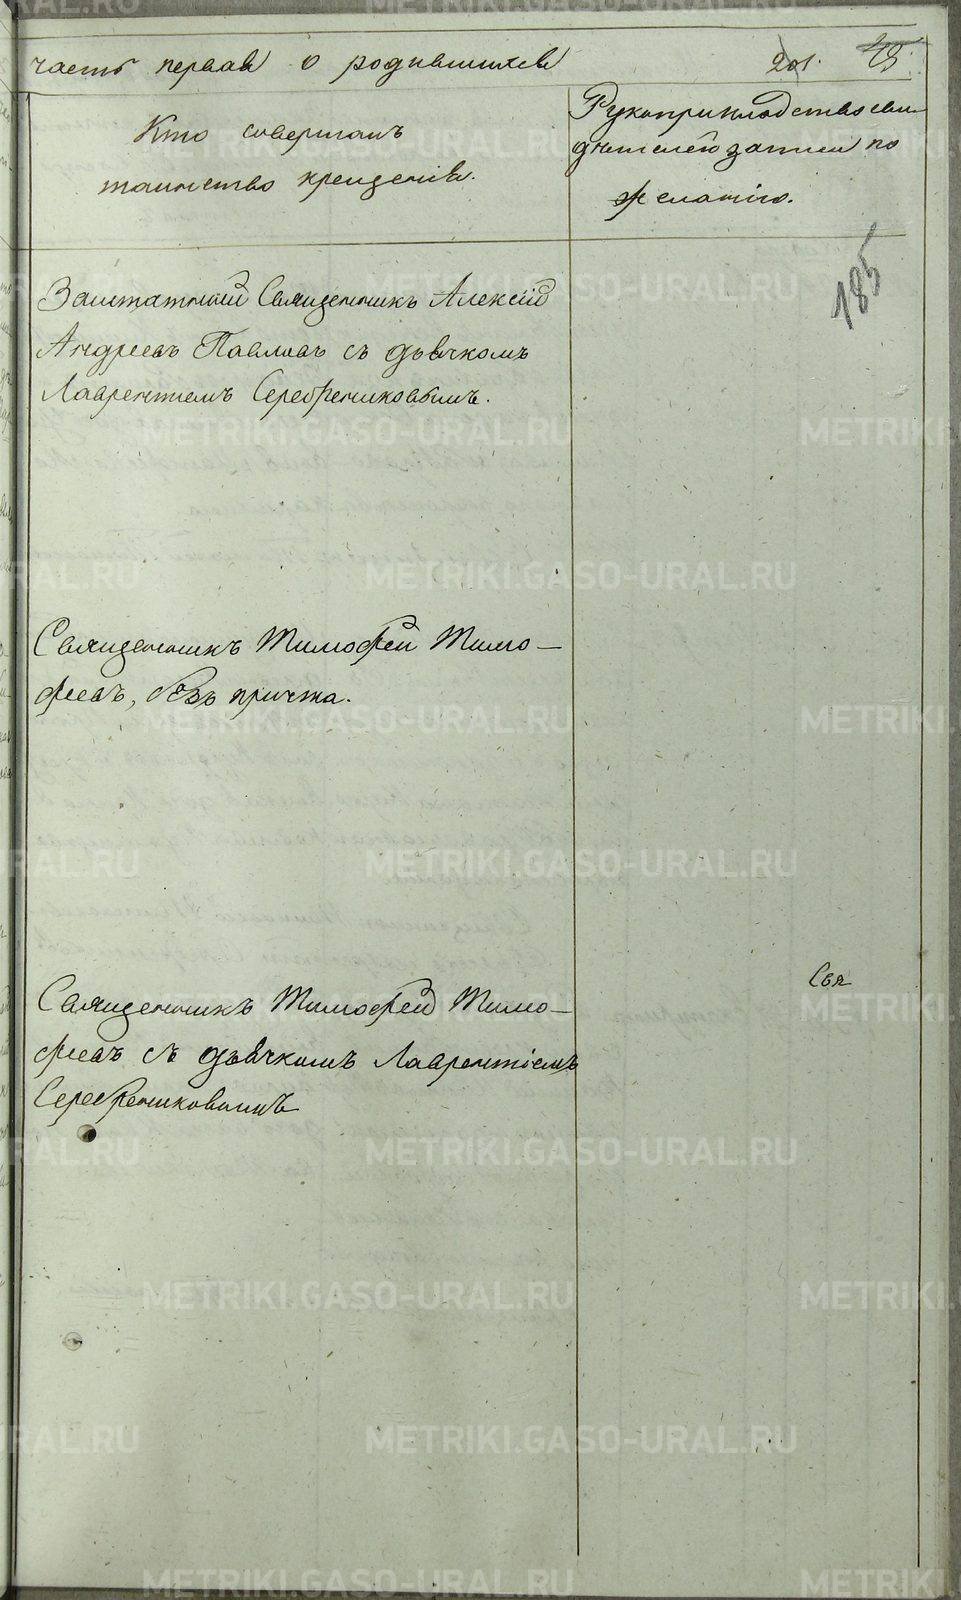 часть первая о родившихся 201. 49
Кто совершалъ
таинство крещенія.
Рукоприкладство сви-
дѣтелей записи по
желанію.
185
Заштатный Священникъ Алексій
Андреевъ Павловъ съ дьячкомъ
Лаврентіемъ Серебрениковымъ.
Священникъ Тимофей Тимо-
феевъ, безъ причта.
Свя
Священникъ Тимофей Тимо-
феевъ съ дьячкомъ Лаврентіемъ
Серебрениковымъ
METRIKI.GASO-URAL.RU